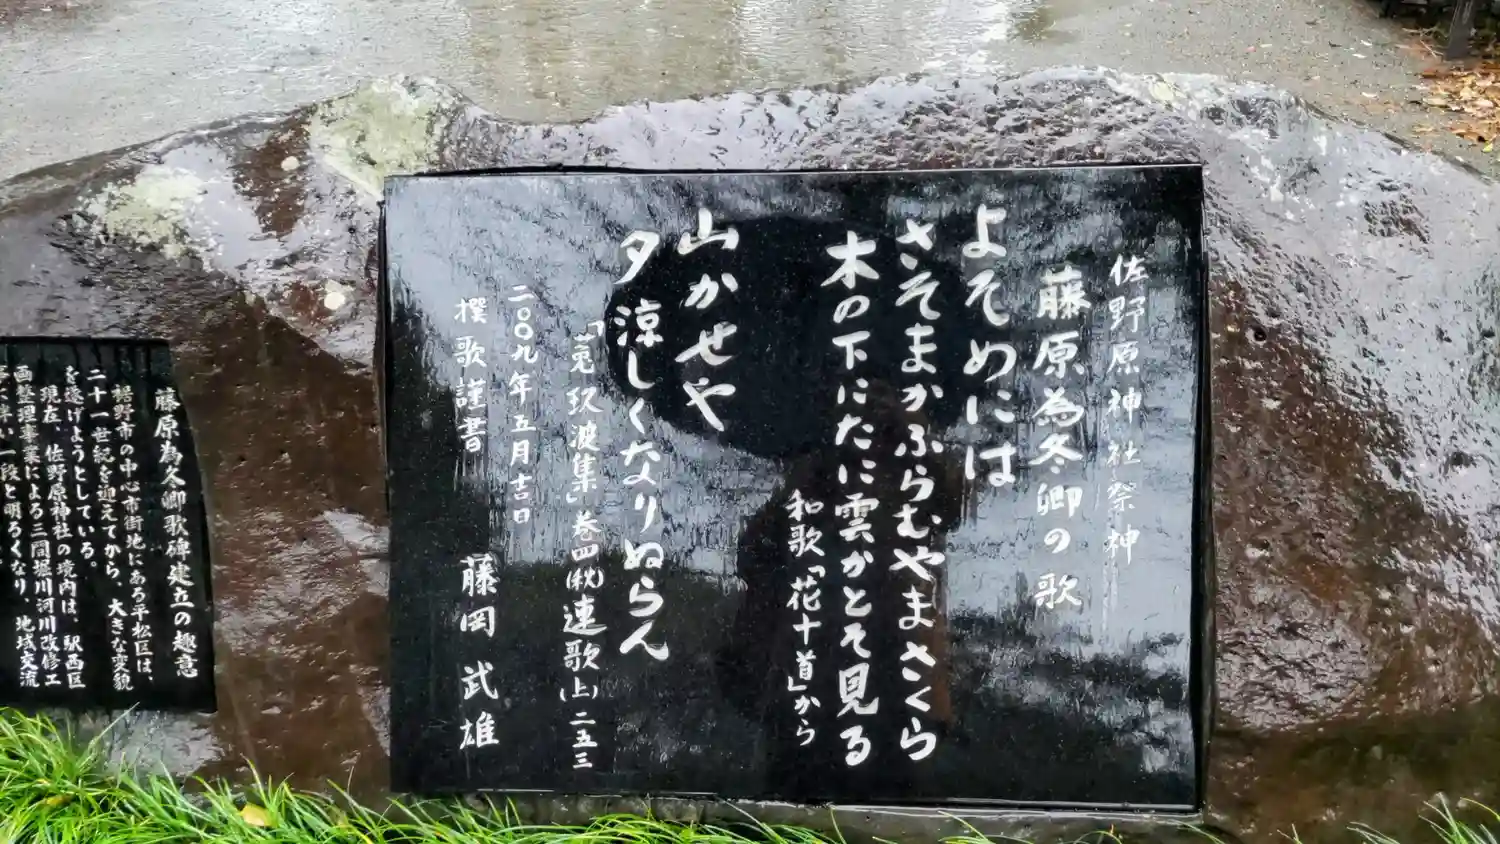 佐野原神社祭神
藤原為冬卿の歌
よそめには
さそまかふらむやまさくら
木の下にたに雲かとそ見る
和歌「花十首」から
山かせや
夕涼しくなりぬらん
「菟玖波集」巻四(秋)連歌(上)二五三
二〇〇九年五月吉日
撰歌謹書 藤岡武雄
藤原為冬卿歌碑建立の趣意
裾野市の中心市街地にある平松区は、
二十一世紀を迎えてから、大きな変貌
を遂げようとしている。
現在、佐野原神社の境内は、駅西区
画整理事業による三間堀川河川改修工
い一段と明るくなり、地域交流